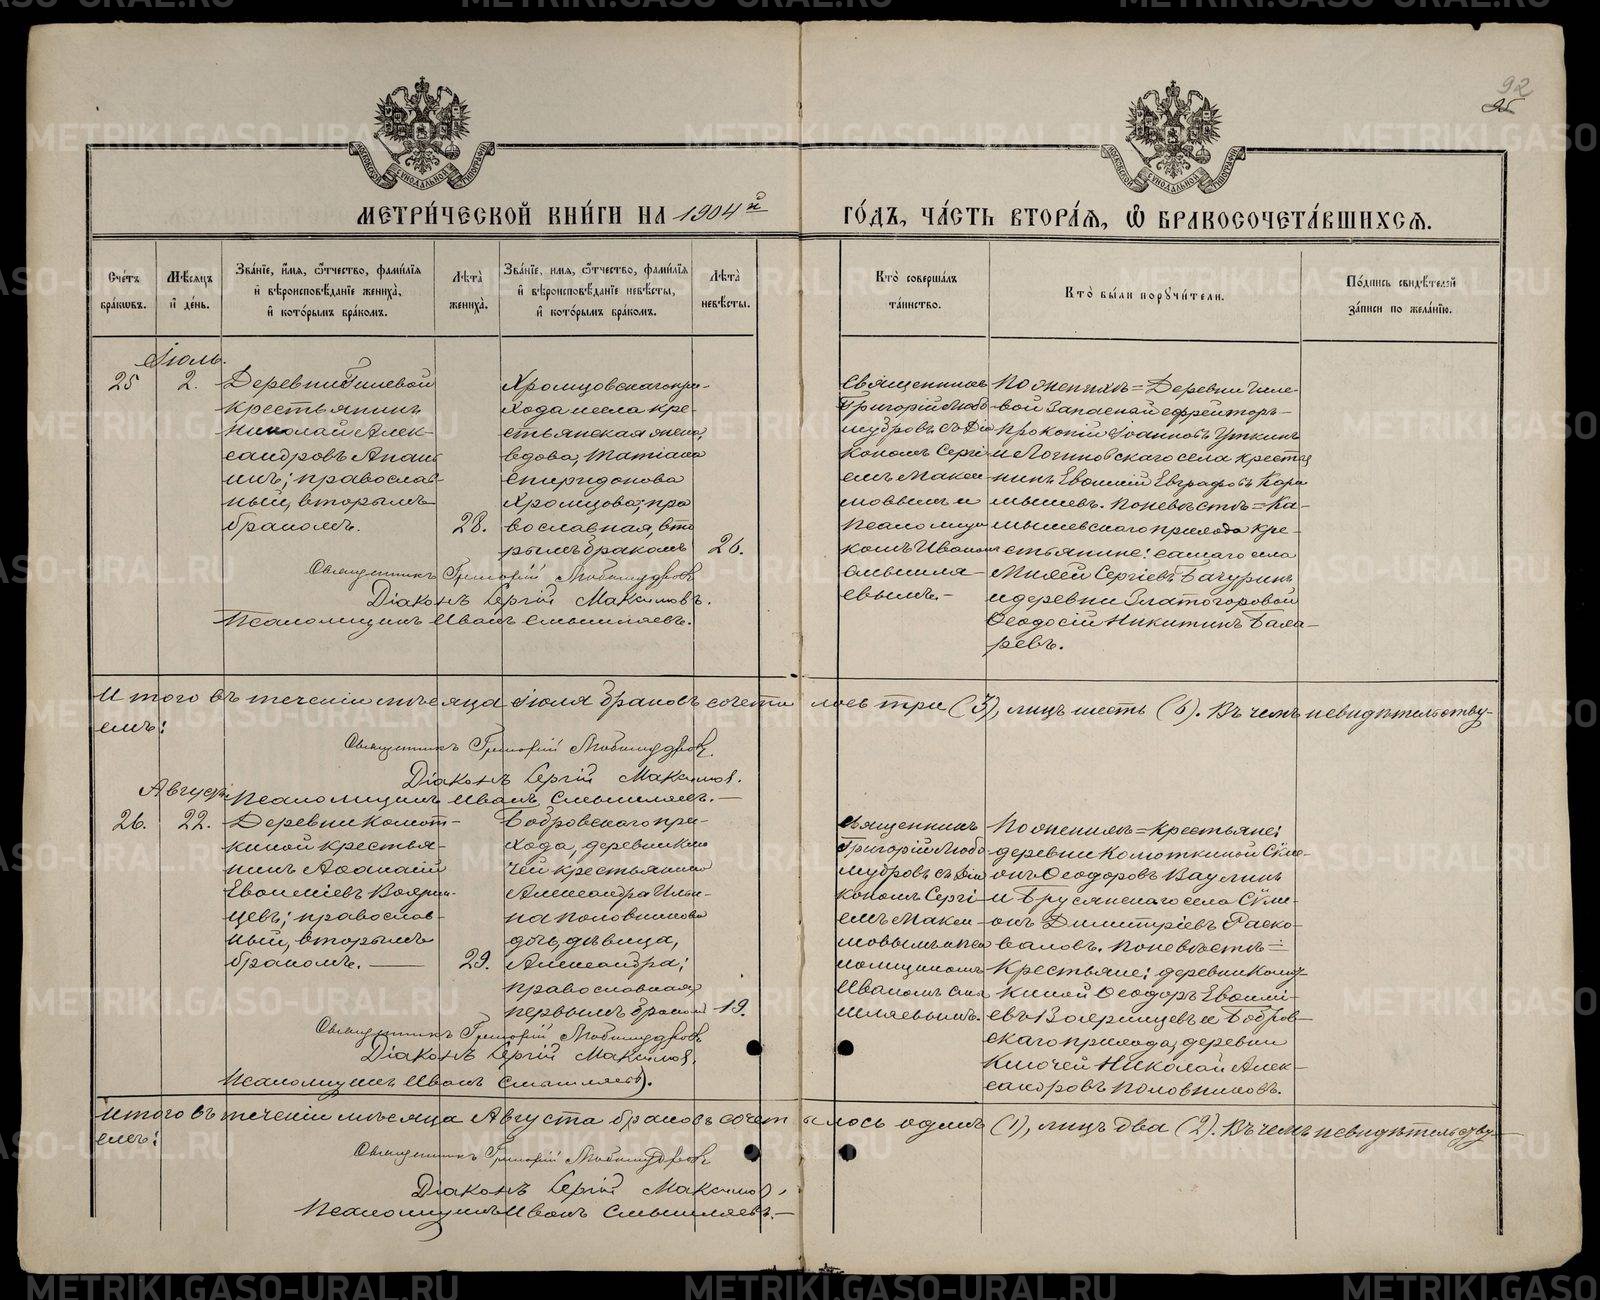 92
95
МОСКОВСКОЙ СѴНОДАЛЬНОЙ ТИПОГРАФІИ
МОСКОВСКОЙ СѴНОДАЛЬНОЙ ТИПОГРАФІИ
МЕТРИ́ЧЕСКОЙ КНИ́ГИ НА 1904й ГО́ДЪ, ЧА́СТЬ ВТОРА́Я, Ѽ БРАКОСОЧЕТА́ВШИХСЯ.
Сче́тъ
бра́ковъ.
Мѣ́сяцъ
и҆ де́нь.
Зва́нїе, и҆́мя, ѻ҆́тчество, фами́лїя
и҆ вѣроисповѣ́данїе жениха̀,
и҆ кото́рымъ бра́комъ.
Лѣта̀
жениха̀.
Зва́нїе, и҆́мя, ѻ҆́тчество, фами́лїя
и҆ вѣроисповѣ́данїе невѣ́сты,
и҆ кото́рымъ бра́комъ.
Лѣта̀
невѣ́сты.
Кто̀ соверша́лъ
та́инство.
Кто̀ бы́ли порꙋчи́тели.
По́дпись свидѣ́телей
за́писи по жела́нїю.
Іюль.
25
2.
Деревни Гилевой
крестьянинъ
Николай Алек-
сандровъ
православ-
ный, вторымъ
бракомъ.
28.
Хромцовскаго при-
хода и села кре-
стьянская жена,
вдова, Татіана
Спиридонова
Хромцова; пра
вославная, вто
рымъ бракомъ
26.
Священникъ
Григорій Любо
мудровъ съ Діа
кономъ Сергі-
емъ Макси
мовымъ и
псаломщи
комъ Иваномъ
Смышля-
евымъ.-
По женихѣ = Деревни Гиле-
вой Запасной ефрейторъ-
Прокопій Іоанновъ Уткинъ
и Логиновскаго села крестья
нинъ Евѳимій Евграфовъ Кара
мышевъ. По невѣстѣ = Ка-
мышевскаго прихода кре-
стьянине: самаго села
Сергіевъ Бачуринъ
и деревни Златогоровой
Ѳеодосій Никитинъ Бала-
ревъ.
Священникъ Григорій Любомудровъ
Діаконъ Сергій Максимовъ.
Псаломщикъ Иванъ Смышляевъ.
Итого въ теченіи мѣсяца Іюля браковъ сочета лось три (3), лицъ шесть (6). Въ чемъ и свидѣтельству-
емъ:
Священникъ Григорій Любомудровъ.
Діаконъ Сергій Максимовъ.
Псаломщикъ Иванъ Смышляевъ.-
Августъ
26.
22.
Деревни Комот-
киной крестья-
нинъ Аѳанасій
Евѳиміевъ Воярин-
цевъ; православ-
ный, вторымъ
бракомъ.
29.
Бобровскаго при-
хода, деревни Клю
чей крестьянина
Александра Ильи-
на Половникова
дочь, дѣвица,
Александра;
православная,
первымъ бракомъ
19.
Священникъ
Григорій Любо
мудровъ съ Діа
кономъ Сергі-
емъ Макси-
мовымъ и пса
ломщикомъ
Иваномъ Смы
шляевымъ.
По женихѣ = Крестьяне:
деревни Комоткиной Сѵме-
онъ Ѳеодоровъ Ваулинъ
и Брусянскаго села Сѵме-
онъ Димитріевъ Раско-
валовъ. По невѣстѣ =
Крестьяне: деревни Комот
киной Ѳеодоръ Евѳимі-
евъ Вояринцевъ и Бобров-
скаго прихода, деревни
Ключей Николай Алек-
сандровъ Половниковъ.
Священникъ Григорій Любомудровъ
Діаконъ Сергій Максимовъ.
Псаломщикъ Иванъ Смышляевъ.
Итого въ теченіи мѣсяца Августа браковъ сочет алось одинъ (1), лицъ два (2). Въ чемъ и свидѣтельству-
емъ:
Священникъ Григорій Любомудровъ
Діаконъ Сергій Максимовъ,
Псаломщикъ Иванъ Смышляевъ.-
METRIKI.GASO-URAL.RU